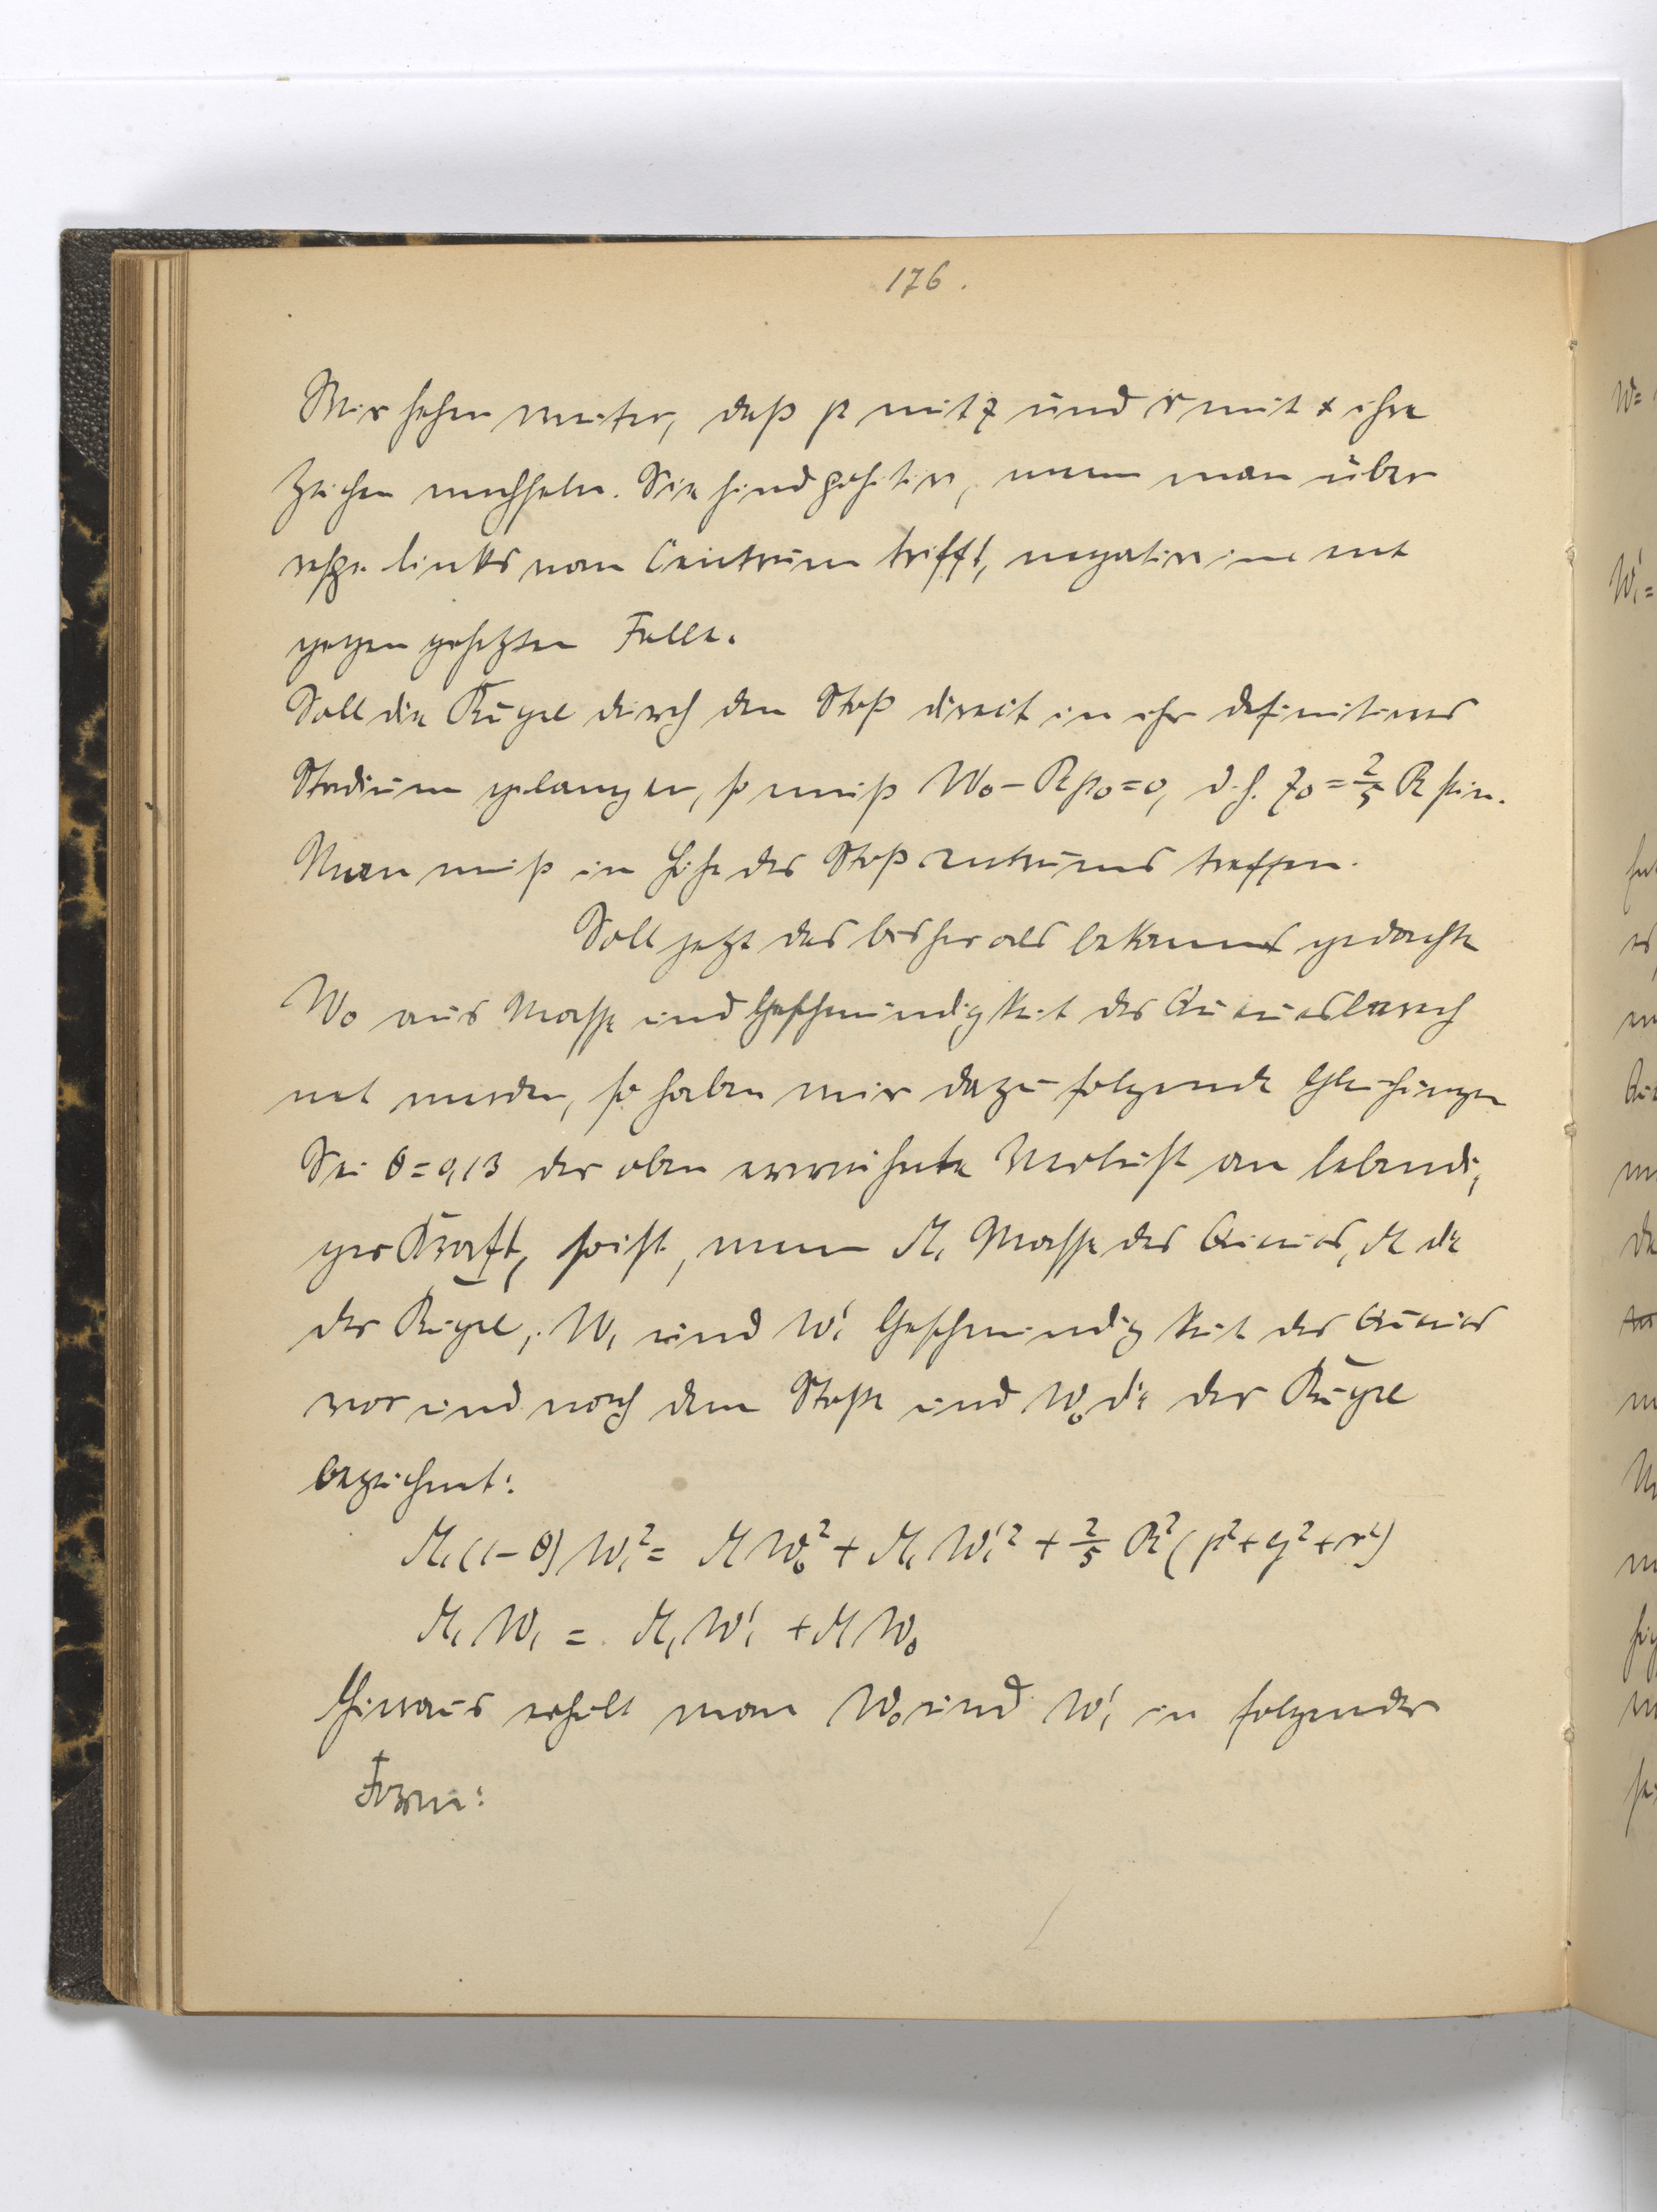 176.
Wir sehen weiter, daß p mit z und r mit x ihre
Zeichen wechseln. Sie sind positiv, wenn man über
resp. links vom Centrum trifft, negativ im ent
gegen gesetzten Falle.
Soll die Kugel durch den Stoß direct in ihr definitives
Stadium gelangen, so muß W₀ - Rp₀ = 0, d.h. z₀ = 2/5 R sein.
Man muß in Höhe des Stoßcentrums treffen.
Soll jetzt das bisher als bekannt gedachte
W₀ aus Masse und Geschwindigkeit des Queues berech
net werden, so haben wir dazu folgende Gleichungen
Sei θ = 0,13 der oben erwähnte Verlust an lebendi,
ger Kraft, so ist, wenn M₁ Masse des Queues, M die
der Kugel, W₁ und W₁' Geschwindigkeit des Queues
vor und nach dem Stoße und W₀ die der Kugel
bezeichnet:
M₁(1-θ)W₁² = MW₀² + M₁W₁'² + 2/5 R²(p²+q²+r²)
M₁W₁ = M₁W₁' + MW₀
Hieraus erhält man W₀ und W₁' in folgender
Form:
W=
W₁'=